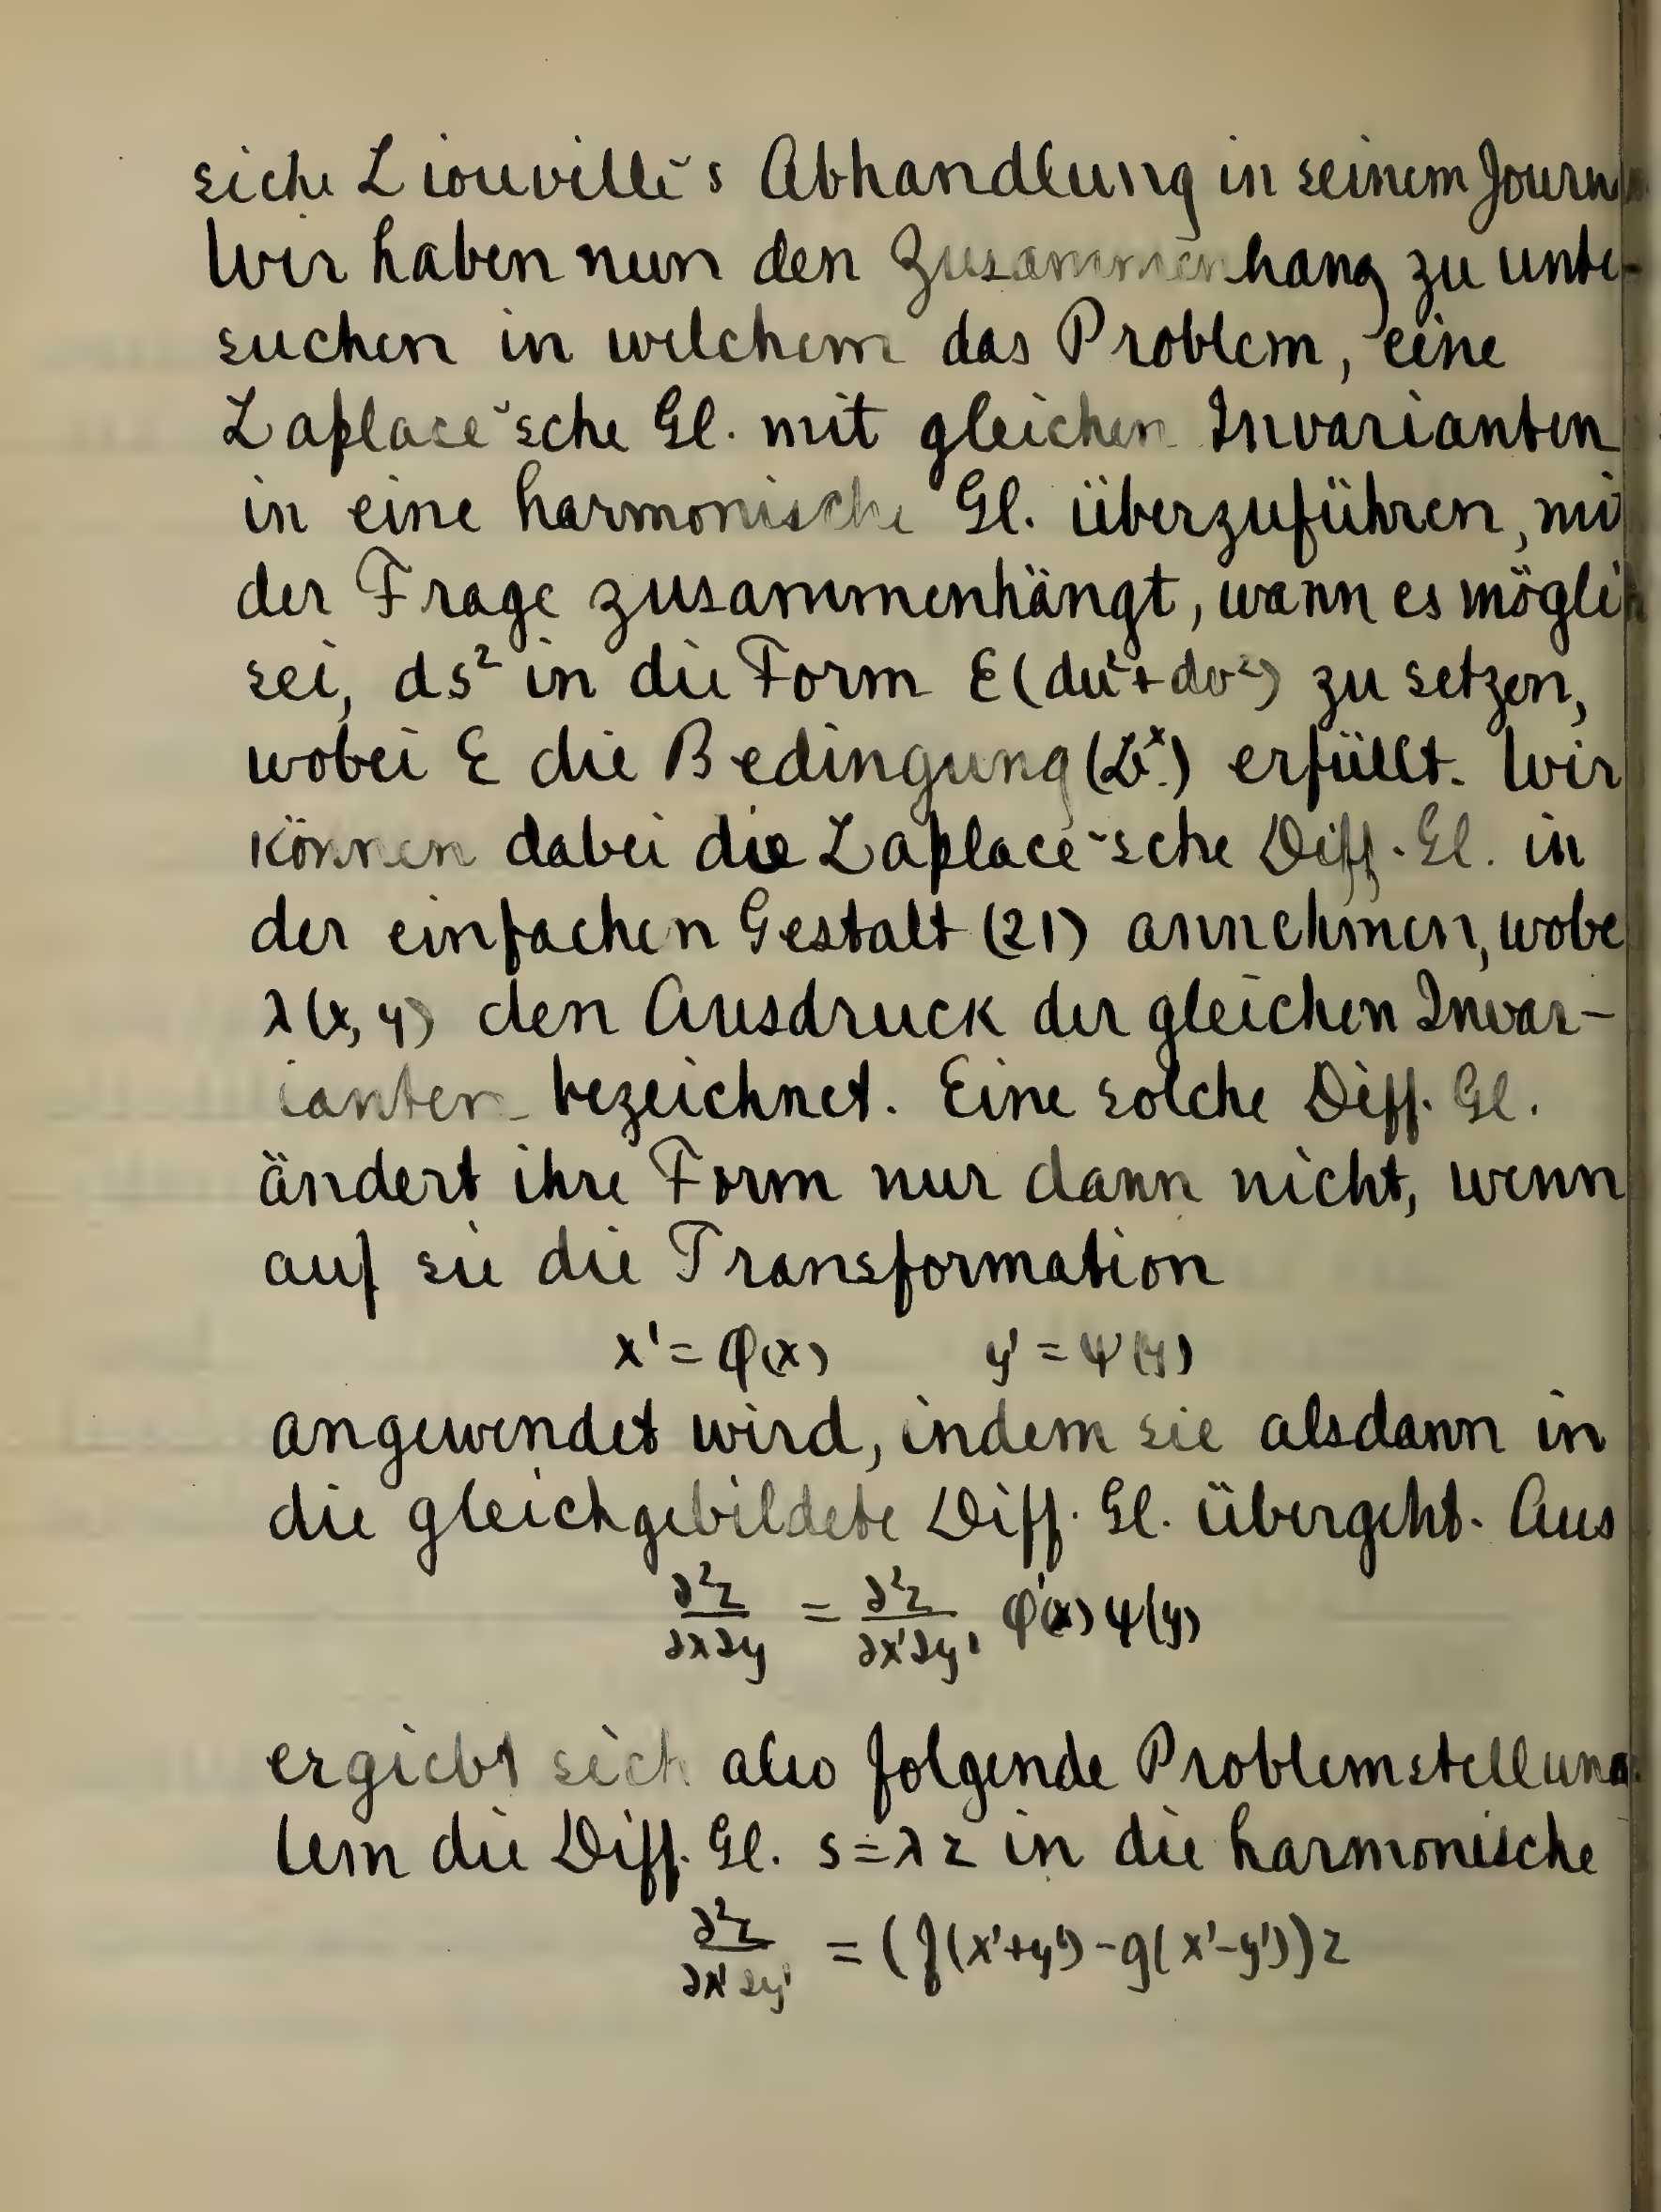 siehe Liouville's Abhandlung in seinem Journ
Wir haben nun den Zusammenhang zu unte-
suchen in welchem das Problem, eine
Laplace'sche Gl. mit gleichen Invarianten
in eine harmonische Gl. überzuführen, mi
der Frage zusammenhängt, wann es möglich
sei, ds² in die Form E(du²+dv²) zu setzen,
wobei E die Bedingung (L*.) erfüllt. Wir
können dabei die Laplace'sche Diff. Gl. in
der einfachen Gestalt (21) annehmen, wobe
λ(x, y) den Ausdruck der gleichen Invar-
ianten bezeichnet. Eine solche Diff. Gl.
ändert ihre Form nur dann nicht, wenn
auf sie die Transformation
x' = φ(x) y' = ψ(y)
angewendet wird, indem sie alsdann in
die gleichgebildete Diff. Gl. übergeht. Aus
∂²z/∂x∂y = ∂²z/∂x'∂y' φ'(x) ψ(y)
ergiebt sich also folgende Problemstellung
Um die Diff. Gl. s = λz in die harmonische
∂²z/∂x'∂y' = (f(x'+y') - g(x'-y'))z